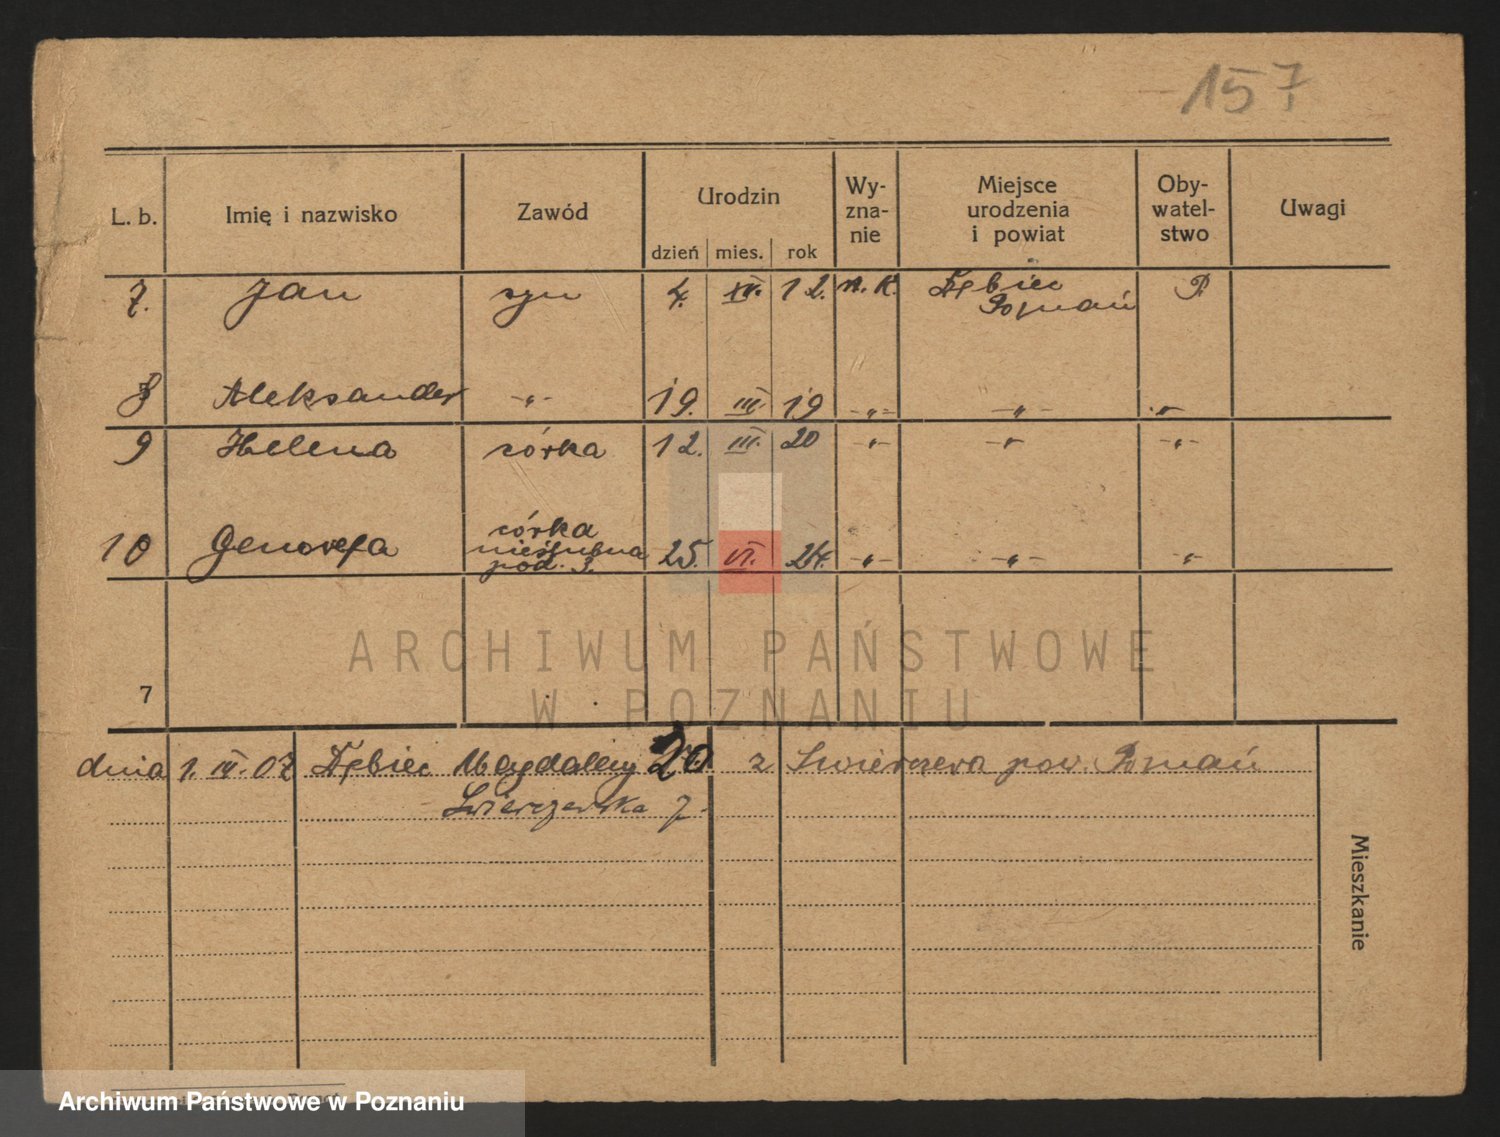 157
L. b. Imię i nazwisko Zawód Urodzin dzień mies. rok Wy-zna-nie Miejsce urodzenia i powiat Oby-watel-stwo Uwagi
7. Jan syn 4. 12. r. k. Dębiec P.
Poznań
8 Aleksander -„- 19. III. 19 -„- -„- -„-
9 Helena córka 12. III. 20 -„- -„- -„-
córka
10 Genowefa nieślubna 25. VI. 24. -„- -„- -„-
pod. 3.
ARCHIWUM PAŃSTWOWE
W POZNANIU
7
dnia 1. 07 Dębiec Magdaleny 20. z pow. Poznań
Świerczewska 7.
Mieszkanie
Archiwum Państwowe w Poznaniu